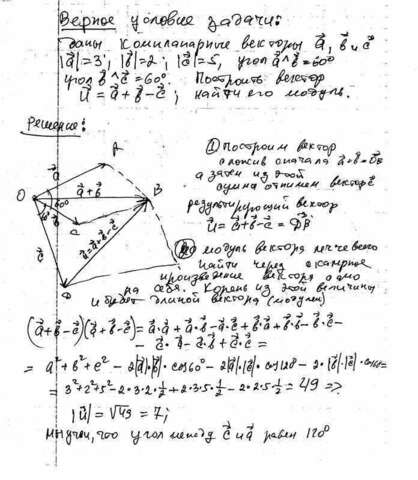 Верное условие задачи:
даны компланарные векторы a⃗, b⃗ и c⃗
|a⃗|=3; |b⃗|=2; |c⃗|=5, угол a⃗^b⃗=60°
угол b⃗^c⃗=60°. Построить вектор
u⃗ = a⃗+b⃗-c⃗; найти его модуль.
Решение:
A
a⃗
O
a⃗+b⃗
B
60°
b⃗
C
c⃗
u⃗=a⃗+b⃗-c⃗
D
① Построим вектор
сложив сначала a⃗+b⃗=OB
а затем из этой
суммы отнимем вектор c⃗
результирующий вектор
u⃗ = a⃗+b⃗-c⃗ = DB
модуль вектора легче всего
найти через скалярное
произведение вектора само
на себя. Корень из этой величины
и будет длиной вектора (модулем)
(a⃗+b⃗-c⃗)(a⃗+b⃗-c⃗) = a⃗·a⃗+a⃗·b⃗-a⃗·c⃗+b⃗·a⃗+b⃗·b⃗-b⃗·c⃗-
- c⃗·a⃗-c⃗·b⃗+c⃗·c⃗ =
= a²+b²+c² - 2|a⃗|·|b⃗|·cos60° - 2|a⃗|·|c⃗|·cos120 - 2·|b⃗|·|c⃗|·cos60=
= 3²+2²+5²-2·3·2·½+2·3·5·½-2·2·5·½ = 49 =>
|u⃗| = √49 = 7;
мы учли, что угол между c⃗ и a⃗ равен 120°